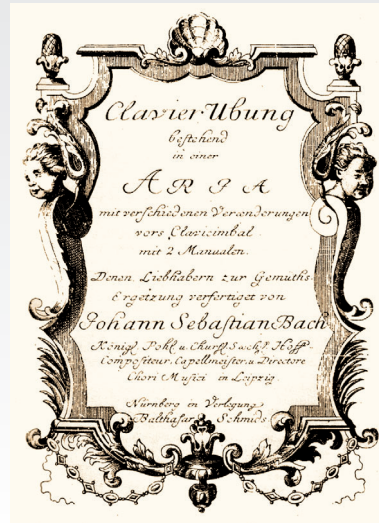 Clavier Ubung
bestehend
in einer
ARIA
mit verschiedenen Verænderungen
vors Clavicimbal
mit 2 Manualen.
Denen Liebhabern zur Gemüths-
Ergetzung verfertiget von
Johann Sebastian Bach
Königl. Pohl. u. Churfl. Sæchs. Hoff-
Compositeur, Capellmeister, u. Directore
Chori Musici in Leipzig.
Nürnberg in Verlegung
Balthasar Schmids